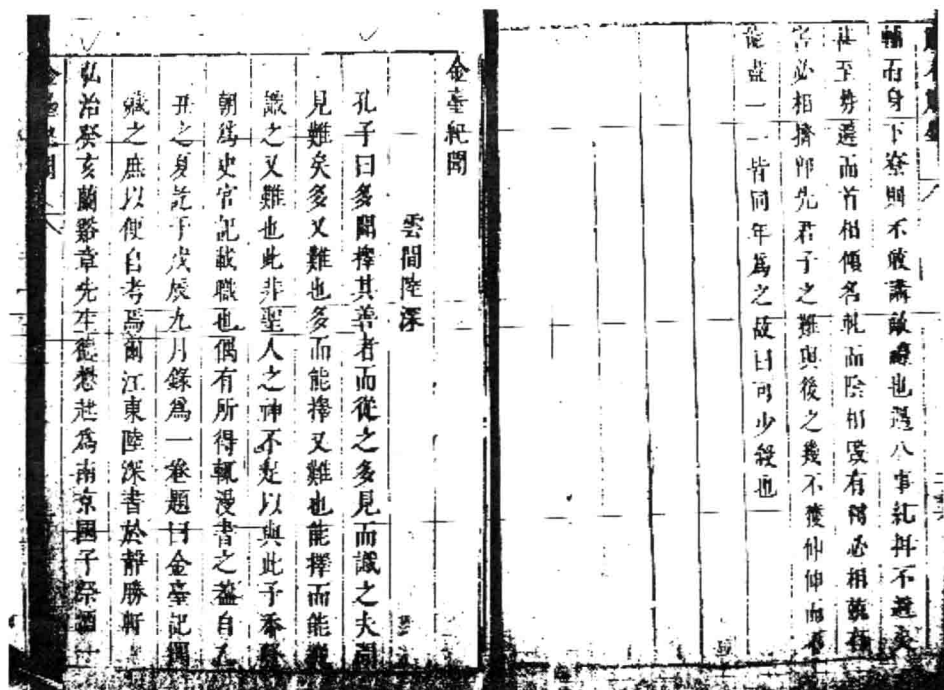 輔而身下寮則不敢講敵禮也過八事糺其不避矣
甚至募遷而首相傾名軋而陰相毀有稱必相
官必相擠即先君子之難與後之幾不獲伸伸而不
能盡一一皆同年為之故曰可少殺也
金臺紀聞
雲間陸深
孔子曰多聞擇其善者而從之多見而識之夫聞
見難矣多又難也多而能擇又難也能擇而能
識之又難也此非聖人之神不足以與此予忝
朝爲史官記載職也偶有所得輒漫書之蓋自乙
丑之夏訖于戊辰九月錄爲一卷題曰金臺記聞
藏之庶以便自考焉爾江東陸深書於靜勝軒
弘治癸亥蘭谿章先生德懋起爲南京國子祭酒
金臺紀聞